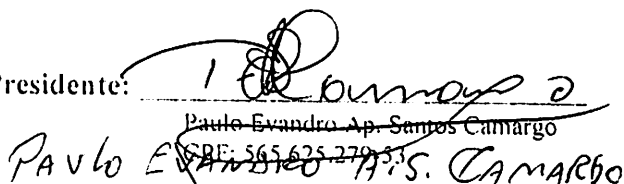 Presidente:
Paulo Evandro Ap. Santos Camargo
CPF: 565.625.279-53
PAVLO EVANDRO A.S. CAMARGO